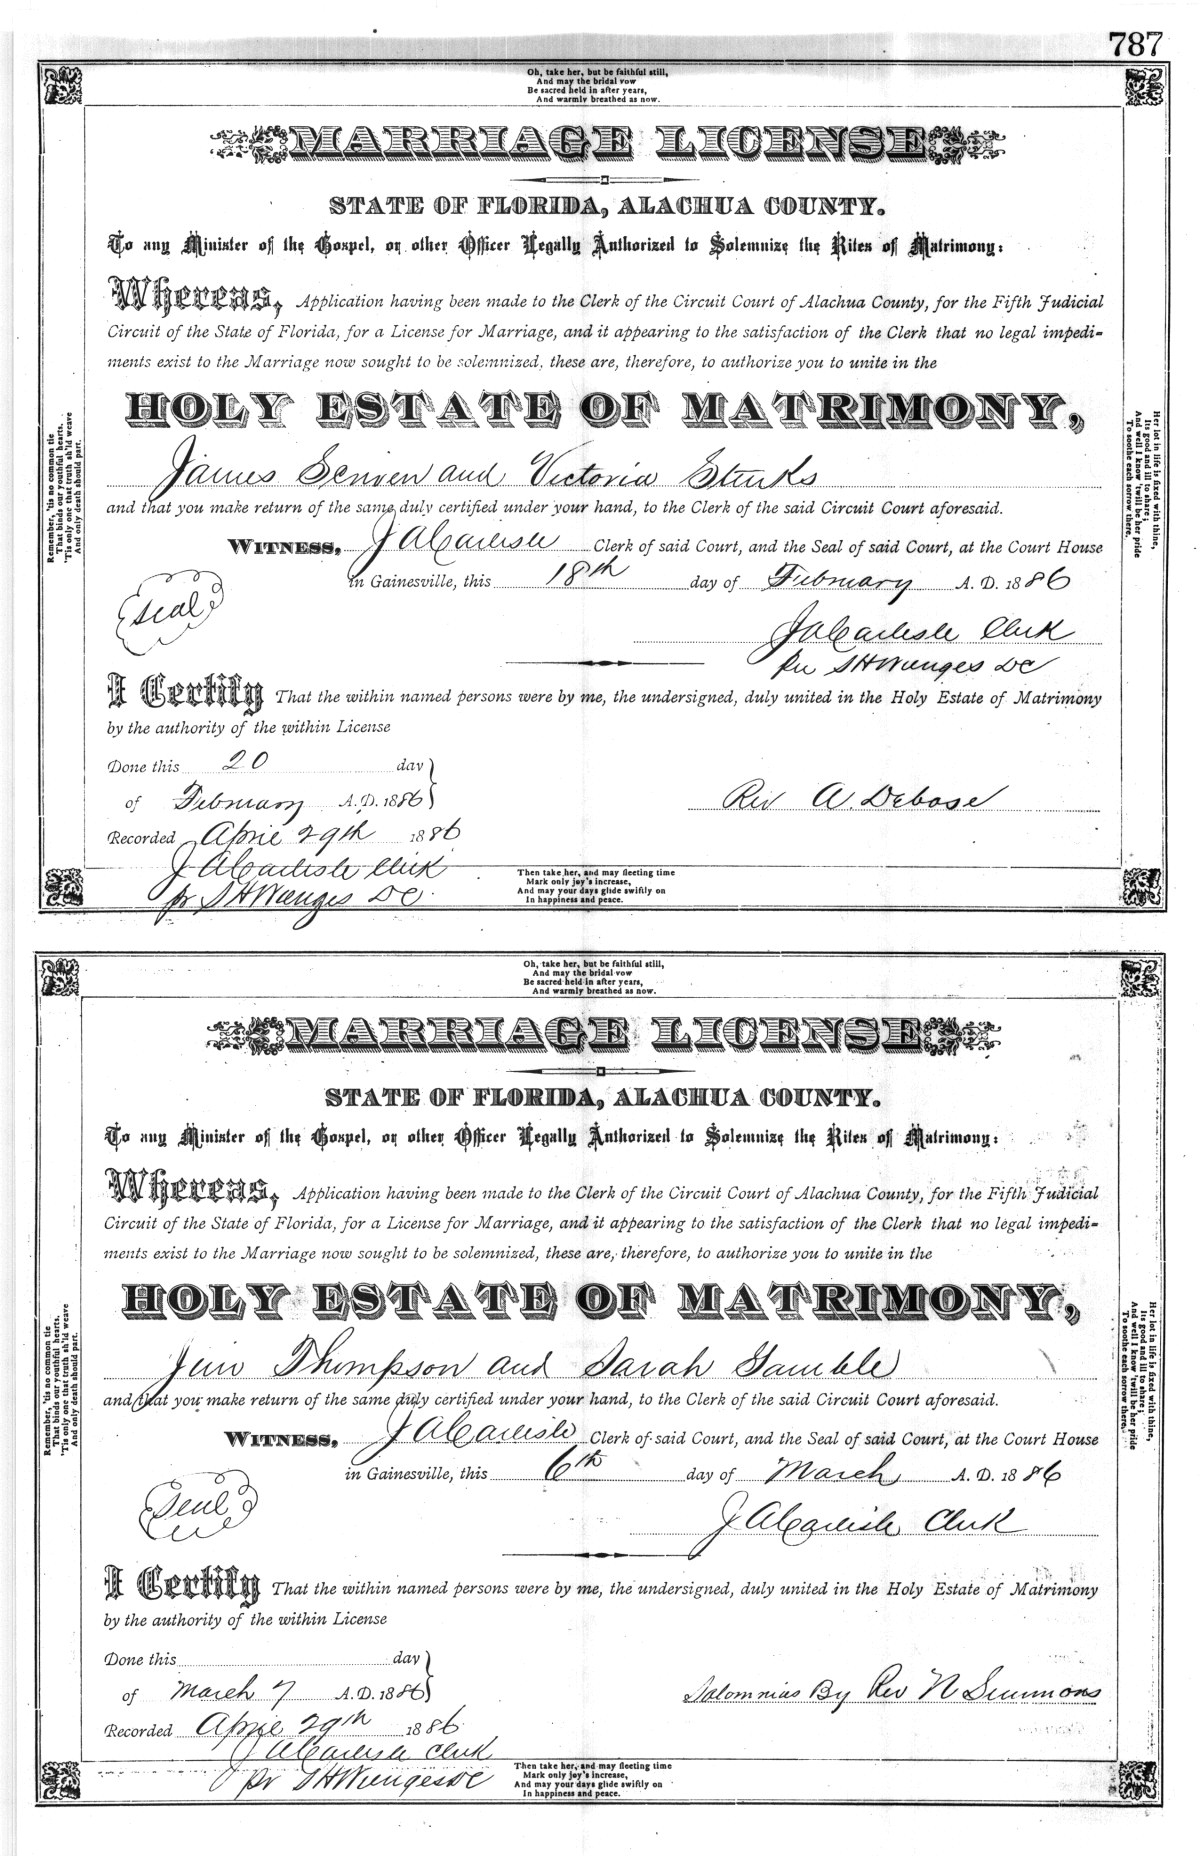 787
Oh, take her, but be faithful still,
And may the bridal vow
Be sacred held in after years,
And warmly breathed as now.
MARRIAGE LICENSE
STATE OF FLORIDA, ALACHUA COUNTY.
To any Minister of the Gospel, or other Officer Legally Authorized to Solemnize the Rites of Matrimony:
Whereas, Application having been made to the Clerk of the Circuit Court of Alachua County, for the Fifth Judicial
Circuit of the State of Florida, for a License for Marriage, and it appearing to the satisfaction of the Clerk that no legal impedi-
ments exist to the Marriage now sought to be solemnized, these are, therefore, to authorize you to unite in the
HOLY ESTATE OF MATRIMONY,
James Scriven and Victoria
and that you make return of the same duly certified under your hand, to the Clerk of the said Circuit Court aforesaid.
WITNESS, J A Carlisle Clerk of said Court, and the Seal of said Court, at the Court House
in Gainesville, this 18th day of February A. D. 1886
Seal
J A Carlisle Clerk
Per S H Wienges DC
I Certify That the within named persons were by me, the undersigned, duly united in the Holy Estate of Matrimony
by the authority of the within License
Done this 20 day
of February A.D. 1886
Rev A. Debose
Recorded April 29th 1886
J A Carlisle Clerk
pr S H Wienges DC
Remember, 'tis no common tie
That binds our youthful hearts.
'Tis only one that truth sh'ld weave
And only death should part.
Her lot in life is fixed with thine,
Its good and ill to share;
And well I know 'twill be her pride
To soothe each sorrow there.
Then take her, and may fleeting time
Mark only joy's increase,
And may your days glide swiftly on
In happiness and peace.
Oh, take her, but be faithful still,
And may the bridal vow
Be sacred held in after years,
And warmly breathed as now.
MARRIAGE LICENSE
STATE OF FLORIDA, ALACHUA COUNTY.
To any Minister of the Gospel, or other Officer Legally Authorized to Solemnize the Rites of Matrimony:
Whereas, Application having been made to the Clerk of the Circuit Court of Alachua County, for the Fifth Judicial
Circuit of the State of Florida, for a License for Marriage, and it appearing to the satisfaction of the Clerk that no legal impedi-
ments exist to the Marriage now sought to be solemnized, these are, therefore, to authorize you to unite in the
HOLY ESTATE OF MATRIMONY,
Jim Thompson and Sarah Gamble
and that you make return of the same duly certified under your hand, to the Clerk of the said Circuit Court aforesaid.
WITNESS, J A Carlisle Clerk of said Court, and the Seal of said Court, at the Court House
in Gainesville, this 6th day of March A. D. 1886
Seal
J A Carlisle Clerk
I Certify That the within named persons were by me, the undersigned, duly united in the Holy Estate of Matrimony
by the authority of the within License
Done this day
of March 7 A.D. 1886
By Rev N Simmons
Recorded April 29th 1886
J A Carlisle Clerk
pr S H Wienges DC
Remember, 'tis no common tie
That binds our youthful hearts.
'Tis only one that truth sh'ld weave
And only death should part.
Her lot in life is fixed with thine,
Its good and ill to share;
And well I know 'twill be her pride
To soothe each sorrow there.
Then take her, and may fleeting time
Mark only joy's increase,
And may your days glide swiftly on
In happiness and peace.